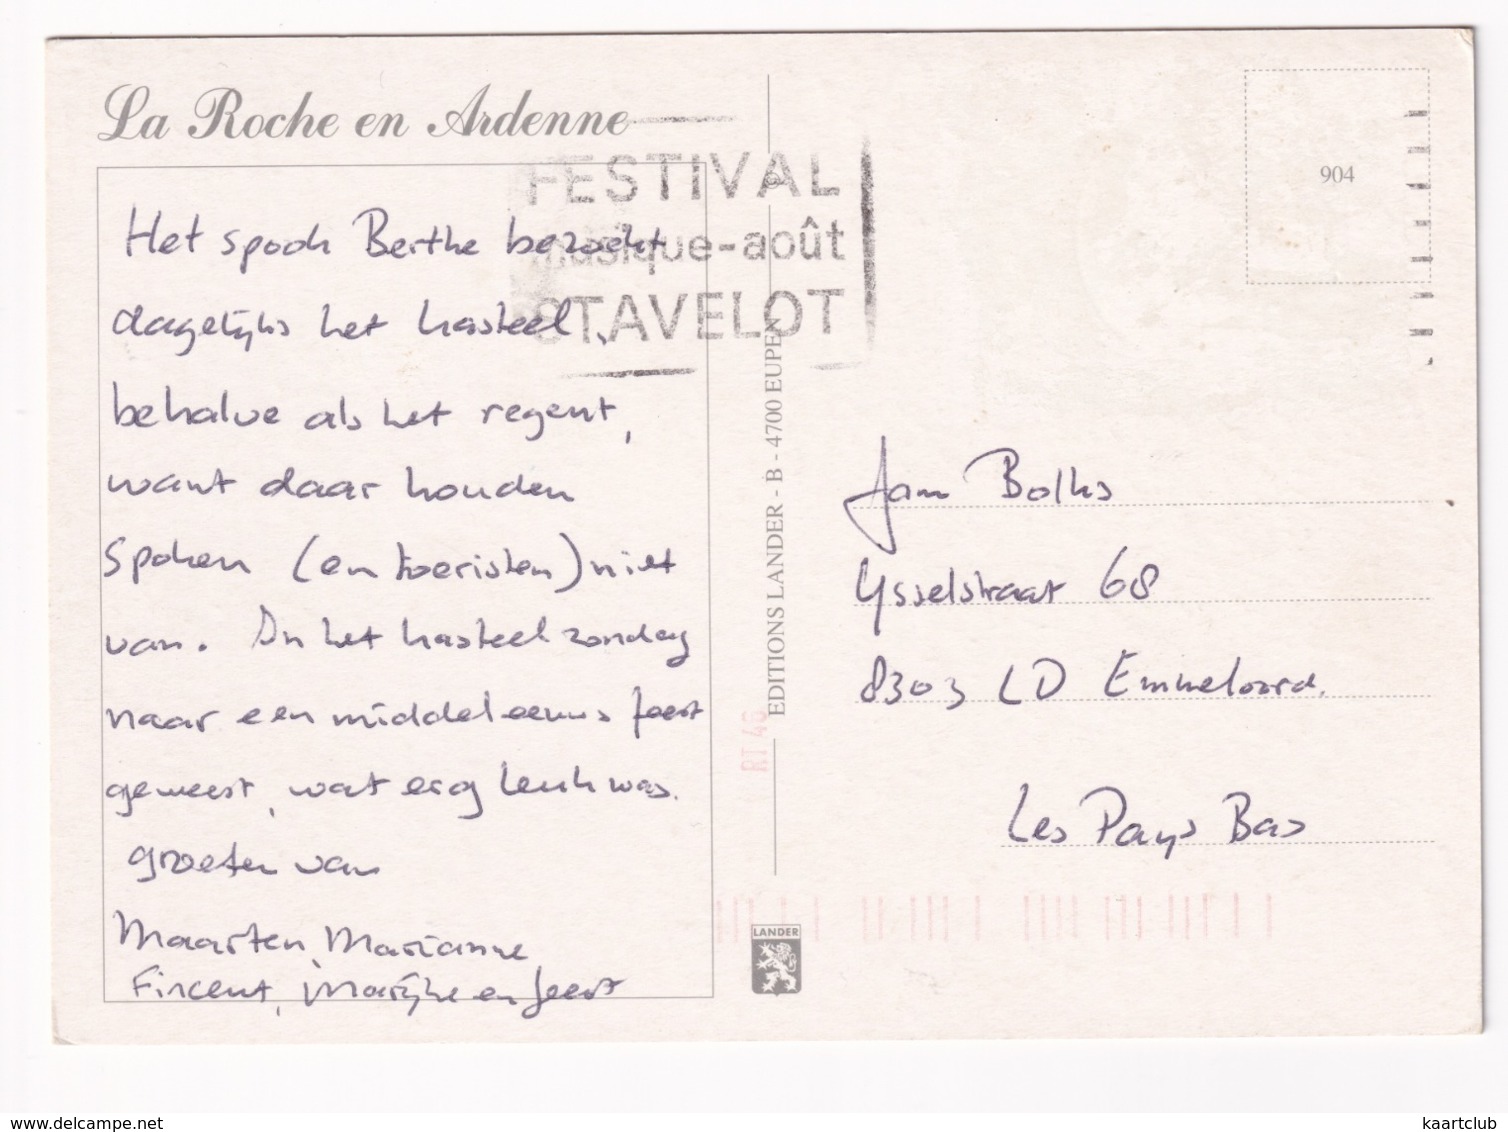 La Roche en Ardenne
FESTIVAL
musique-août
STAVELOT
904
Het spook Berthe bezoekt
dagelijks het kasteel,
behalve als het regent,
want daar houden
Spoken (en toeristen) niet
van. In het kasteel zondag
naar een middeleeuws feest
geweest, wat erg leuk was.
groeten van
Maarten, Marianne,
Fincent, Marijke en feest
EDITIONS LANDER - B - 4700 EUPEN
RT 46
LANDER
Jan Bolks
Ysselstraat 68
8303 LD Emmeloord.
Les Pays Bas
delcampe.net
kaartclub